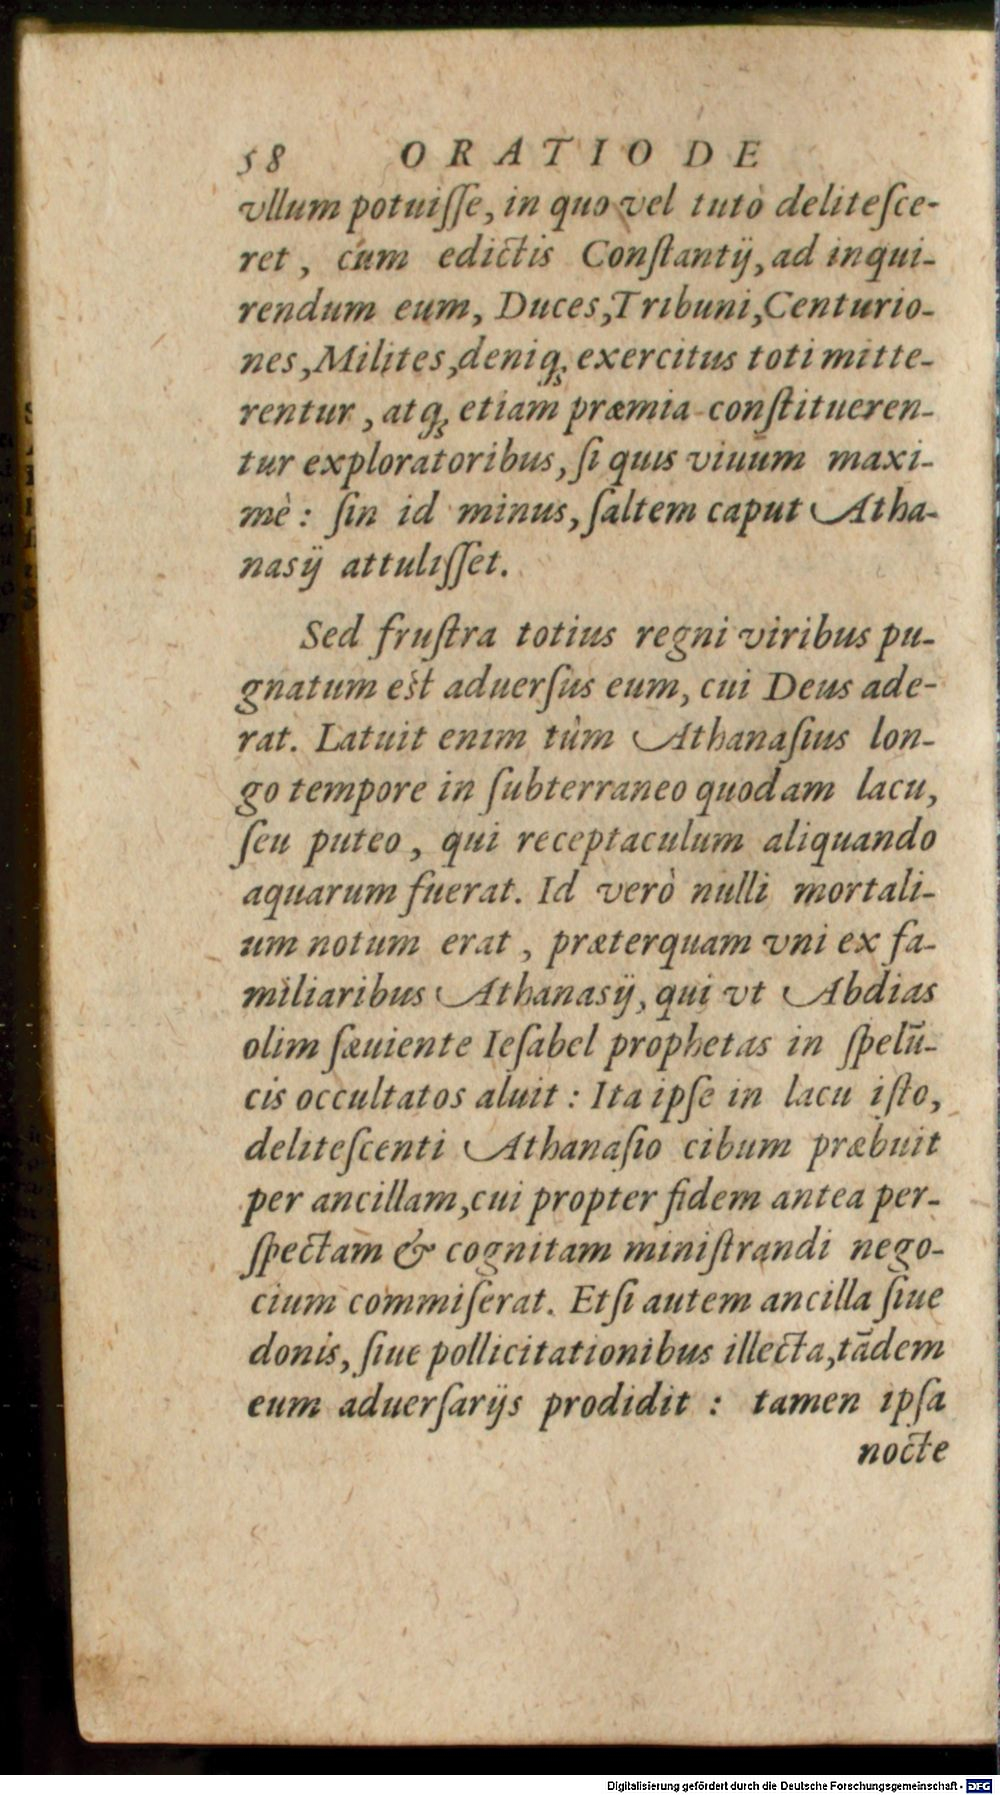 58 ORATIO DE
vllum potuiſſe, in quo vel tutò deliteſce-
ret, cùm edictis Conſtantij, ad inqui-
rendum eum, Duces, Tribuni, Centurio-
nes, Milites, deniq; exercitus toti mitte-
rentur, atq; etiam præmia conſtitueren-
tur exploratoribus, ſi quis viuum maxi-
mè: ſin id minus, ſaltem caput Atha-
nasij attuliſſet.
Sed fruſtra totius regni viribus pu-
gnatum est aduerſus eum, cui Deus ade-
rat. Latuit enim tùm Athanaſius lon-
go tempore in ſubterraneo quodam lacu,
ſeu puteo, qui receptaculum aliquando
aquarum fuerat. Id verò nulli mortali-
um notum erat, præterquam vni ex fa-
miliaribus Athanasij, qui vt Abdias
olim ſæuiente Ieſabel prophetas in ſpelū-
cis occultatos aluit: Ita ipſe in lacu iſto,
deliteſcenti Athanaſio cibum præbuit
per ancillam, cui propter fidem antea per-
ſpectam & cognitam miniſtrandi nego-
cium commiſerat. Etſi autem ancilla ſiue
donis, ſiue pollicitationibus illecta, tādem
eum aduerſarijs prodidit: tamen ipſa
nocte
Digitalisierung gefördert durch die Deutsche Forschungsgemeinschaft - DFG